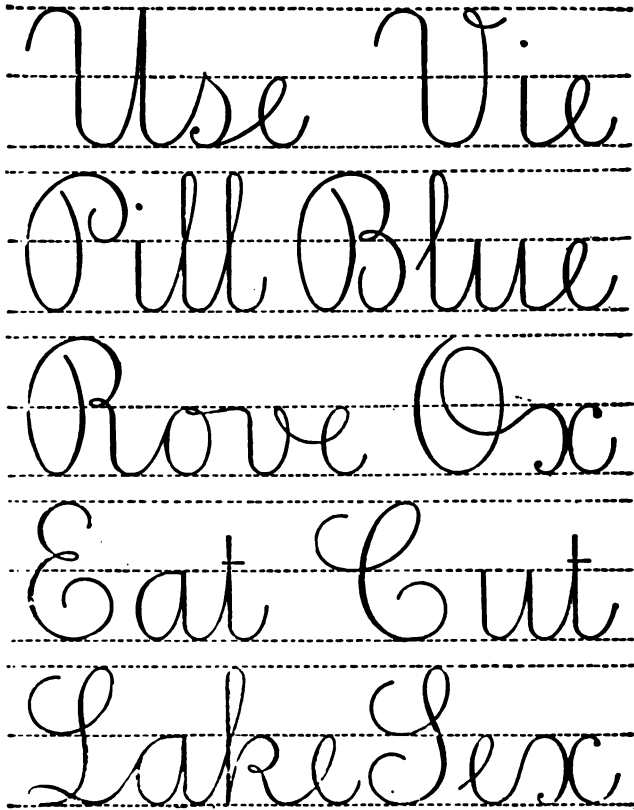 Use Vie
Pill Blue
Rove Ox
Eat Cut
Lake Sex